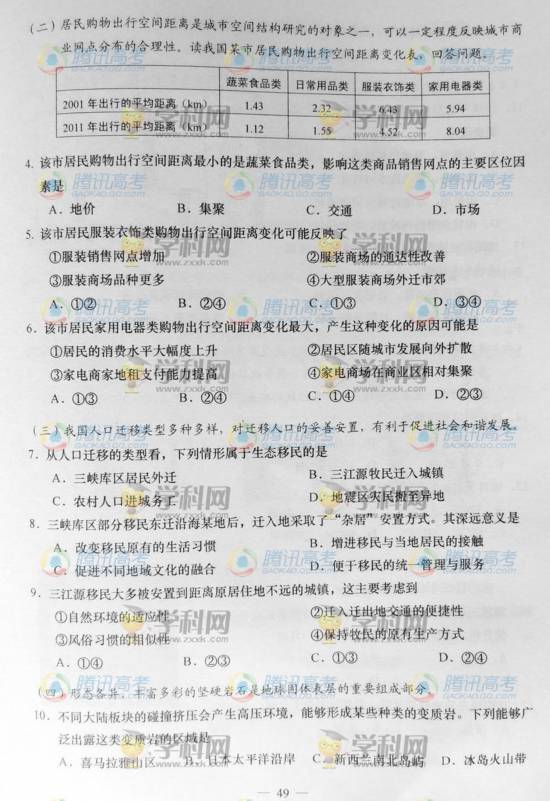 (二) 居民购物出行空间距离是城市空间结构研究的对象之一，可以一定程度反映城市商
业网点分布的合理性。读我国某市居民购物出行空间距离变化表，回答问题。
蔬菜食品类 日常用品类 服装衣饰类 家用电器类
2001 年出行的平均距离（km） 1.43 2.32 6.43 5.94
2011 年出行的平均距离（km） 1.12 1.55 4.52 8.04
4. 该市居民购物出行空间距离最小的是蔬菜食品类，影响这类商品销售网点的主要区位因
素是
A．地价 B．集聚 C．交通 D．市场
5. 该市居民服装衣饰类购物出行空间距离变化可能反映了
①服装销售网点增加 ②服装商场的通达性改善
③服装商场品种更多 ④大型服装商场外迁市郊
A．①② B．②④ C．①③ D．③④
6. 该市居民家用电器类购物出行空间距离变化最大，产生这种变化的原因可能是
①居民的消费水平大幅度上升 ②居民区随城市发展向外扩散
③家电商家地租支付能力提高 ④家电商场在商业区相对集聚
A．①③ B．②④ C．①④ D．②③
(三) 我国人口迁移类型多种多样，对迁移人口的妥善安置，有利于促进社会和谐发展。
7. 从人口迁移的类型看，下列情形属于生态移民的是
A．三峡库区居民外迁 B．三江源牧民迁入城镇
C．农村人口进城务工 D．地震区灾民搬至异地
8. 三峡库区部分移民东迁沿海某地后，迁入地采取了“杂居”安置方式。其深远意义是
A．改变移民原有的生活习惯 B．增进移民与当地居民的接触
C．促进不同地域文化的融合 D．便于移民的统一管理与服务
9. 三江源移民大多被安置到距离原居住地不远的城镇，这主要考虑到
①自然环境的适应性 ②迁入迁出地交通的便捷性
③风俗习惯的相似性 ④保持牧民的原有生产方式
A．①④ B．②③ C．①③ D．②④
(四) 形态各异、丰富多彩的坚硬岩石是地球固体表层的重要组成部分。
10. 不同大陆板块的碰撞挤压会产生高压环境，能够形成某些种类的变质岩。下列能够广
泛出露这类变质岩的区域是
A．喜马拉雅山区 B．日本太平洋沿岸 C．新西兰南北岛屿 D．冰岛火山带
49
腾讯高考
GAOKAO.QQ.COM
学科网
www.zxxk.com